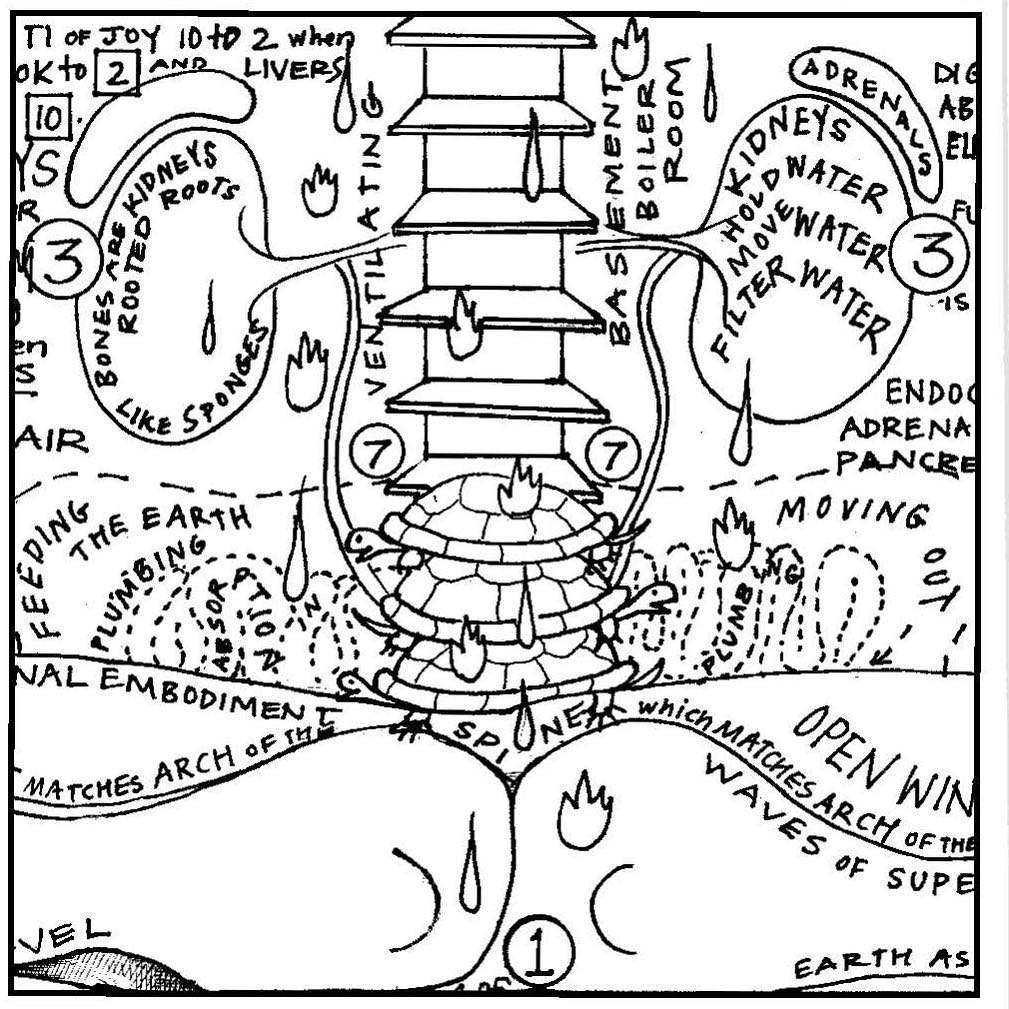 TI OF JOY 10 to 2 when
OK to 2 AND LIVERS
10
YS
R
3
en
IS
AIR
BONES ARE KIDNEYS
ROOTED ROOTS
LIKE SPONGES
VENTILATING
BASEMENT
BOILER
ROOM
ADRENALS
KIDNEYS
HOLD WATER
MOVE WATER
FILTER WATER
3
DIG
AB
EL
FU
IS
ENDOC
ADRENA
PANCRE
7
7
FEEDING
THE EARTH
PLUMBING
ABSORPTION
MOVING
OUT
PLUMBING
NAL EMBODIMENT
MATCHES ARCH OF THE
SPINE
which MATCHES ARCH OF THE
OPEN WIN
WAVES OF SUPE
VEL
1
EARTH AS